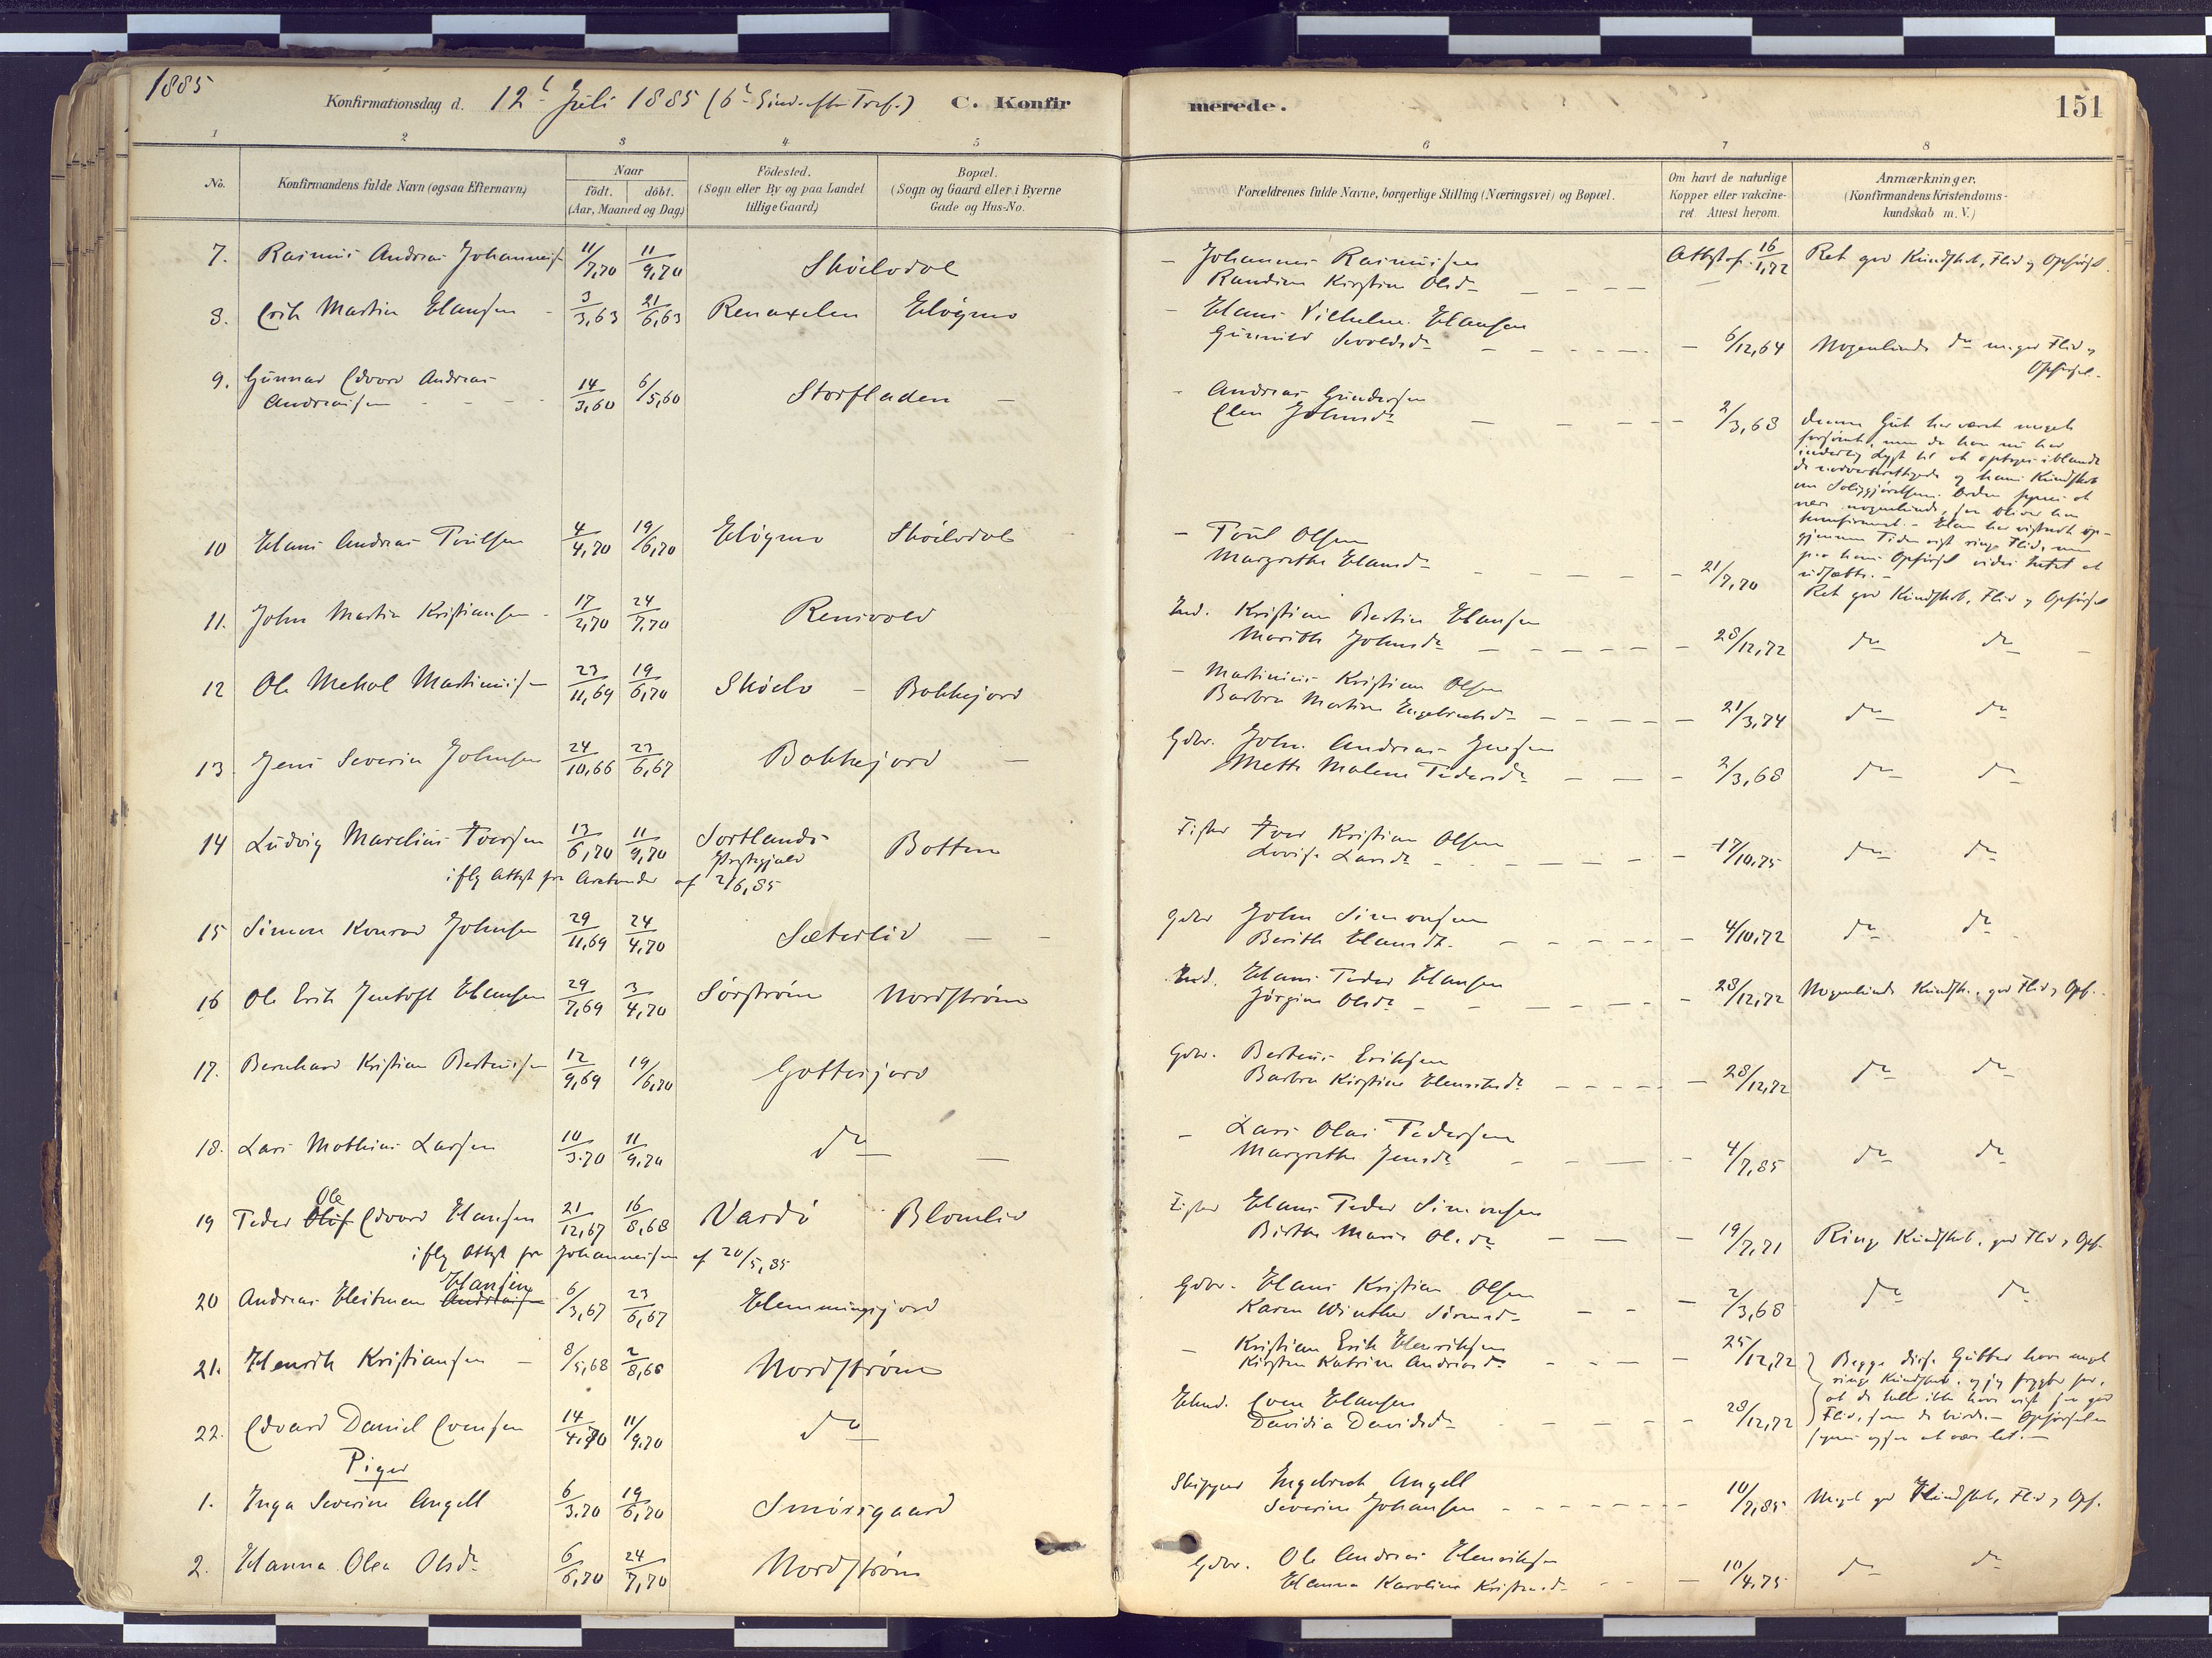 1885
Konfirmationsdag d. 12t Juli 1885 (6t Sønd. efter Tref.) C. Konfir merede. 151
1 2 3 4 5 6 7 8
No.
Konfirmandens fulde Navn (ogsaa Efternavn)
Naar
født. döbt.
(Aar, Maaned og Dag)
Födested.
(Sogn eller By og paa Landet
tillige Gaard)
Bopæl.
(Sogn og Gaard eller i Byerne
Gade og Hus-No.
Forældrenes fulde Navne, borgerlige Stilling (Næringsvei) og Bopæl.
Om havt de naturlige
Kopper eller vakcine-
ret. Attest herom.
Anmærkninger.
(Konfirmandens Kristendoms-
kundskab m. V.)
7. Rasmus Andreas Johannes 11/7,70 11/9,70 Sköelvdal
Johannes Rasmussen
Randine Kirstine Olsd.
Attest af 16/1,72 Ret god Kundskab, Flid og Opførsel.
8. Erik Martin Hansen 3/3,63 21/6,63 Renaxelen Høgmo
Hans Vilhelm Hansen
Gunnild
6/12,64 Nogenlunde do m. god Flid og
Opførsel.
9. Gunnar Edvard Andreas
Andreassen 14/3,60 6/5,60 Storfladen
Andreas Gundersen
Elen Johnsd.
2/3,68 Denne Gut har været meget
forsømt, men da han nu har
inderlig Lyst til at optages iblandt
de nadverberettigede og hans Kundskab
om Saliggjørelsens Orden synes at
være nogenlunde, saa bliver han
konfirmeret. - Han har vistnok op-
gjennem Tiden vist ringe Flid, men
paa hans Opførsel vides Intet at
udsætte. -
10 Hans Andreas Poulsen 4/4,70 19/6,70 Høgmo Sköelvdal
Poul Olsen
Margrethe Hansd.
21/7,70 Ret god Kundskab, Flid og Opførsel
11. John Martin Kristiansen 17/2,70 24/7,70 Rensvold
Ind. Kristian Bertin Hansen
Marith Johnsd.
28/12,72 do do
12 Ole Mekal Martinusen 23/11,69 19/6,70 Skøelv Bakkejord
Martinus Kristian Olsen
Barbra Martine Engebretsd.
21/3,74 do do
13. Jens Severin Johnsen 24/10,66 23/6,67 Bakkejord
Gdbr. John Andreas Jensen
Mette Malene Pedersd.
2/3,68 do do
14 Ludvig Marelius Iversen 13/6,70 11/9,70 Sortlands
Prestegjeld Botten
iflg Attest fra af 2/6,85
Fisker Iver Kristian Olsen
Lovise Larsd.
17/10,75 do do
15 Simon Konrad Johnsen 29/11,69 24/4,70 Sæterlid
Gdbr John Simonsen
Berith Hansdt.
4/10,72 do do
16 Ole Erik Jentoft Hansen 29/7,69 3/4,70 Sørstrøm Nordstrøm
Ind. Hans Peder Hansen
Jørgine Olsd.
28/12,72 Nogenlunde Kundsk., god Flid og Opf.
17. Bernhard Kristian Berteusen 12/9,69 19/6,70 Gottesjord
Gdbr. Berteus Eriksen
Barbra Kirstine Henriksd.
28/12,72 do do
18. Lars Mathias Larsen 10/3.70 11/9.70 do
Lars Olai Pedersen
Margrethe Jensd.
4/7,85 do do
Ole
19 Peder Oluf Edvard Hansen 21/12,67 16/8,68 Vardø Blomlid
iflg Attest fra Johannesen af 20/5,85
Fisker Hans Peder Simonsen
Birthe Marie Olsd.
19/7,71 Ringe Kundskab, god Flid og Opf.
Hansen
20 Andreas Heitmen Andreasen 6/3,67 23/6,67 Hemmingsjord
Gdbr. Hans Kristian Olsen
Karen Winther Simonsd.
2/3,68 do do
21. Henrik Kristiansen 8/5,68 2/8,68 Nordstrøm
Kristian Erik Henriksen
Kirsten Katrine Andreasd.
25/12,72 Begge disse Gutter have meget
ringe Kundskab, og jeg frygter for,
at de heller ikke have vist saa god
Flid, som de burde. - Opførselen
synes ogsaa at være let. -
22. Edvard Daniel Evensen 14/4.70 11/9.70 do
Even Hansen
Davidia Davidsd.
28/12,72
Piger
1. Inga Severine Angell 6/3.70 19/6,70 Smörsgaard
Skipper Engebrect Angell
Severine Johansen
10/7,85 Meget god Kundskab, Flid og Opf.
2. Hanna Olea Olsd. 6/6,70 24/7,70 Nordstrøm
Gdbr. Ole Andreas Henriksen
Hanna Karoline Kristensd.
10/4,75 do do